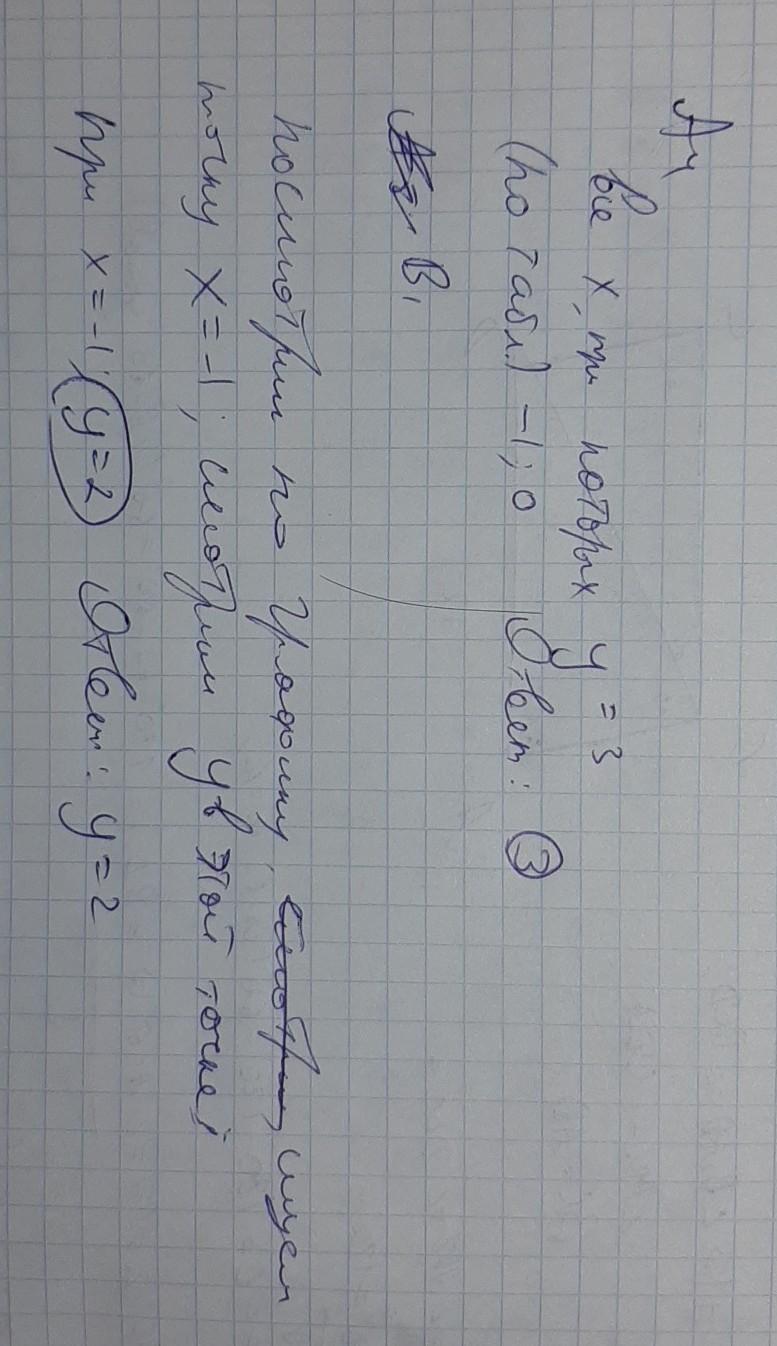 А4
все x, при которых y = 3
(по табл.) -1; 0 Ответ: ③
В1
посмотрим по графику, ищем
точку x = -1; смотрим y в этой точке;
при x = -1; y = 2 Ответ: y = 2